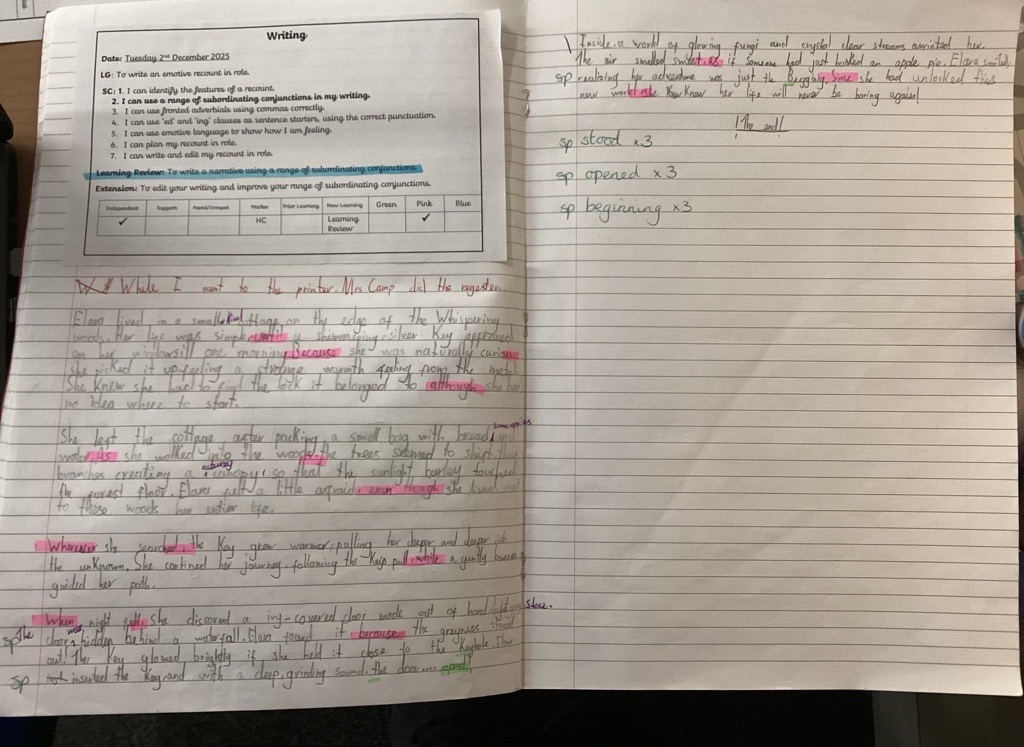 Writing
Date: Tuesday 2nd December 2025
LG: To write an emotive recount in role.
SC: 1. I can identify the features of a recount.
2. I can use a range of subordinating conjunctions in my writing.
3. I can use fronted adverbials using commas correctly.
4. I can use 'ed' and 'ing' clauses as sentence starters, using the correct punctuation.
5. I can use emotive language to show how I am feeling.
6. I can plan my recount in role.
7. I can write and edit my recount in role.
Learning Review: To write a narrative using a range of subordinating conjunctions.
Extension: To edit your writing and improve your range of subordinating conjunctions.
Independent Support Paired/Grouped Marker Prior Learning New Learning Green Pink Blue
✓ HC Learning Review ✓
While I went to the printer, Mrs Camp did the regester.
Elara lived in a small on the edge of the Whispering
woods. Her life was simple until a silver Key appeared
on her windowsill one morning. Because she was naturally curious
she picked it up, feeling a strange warmth from the metal.
She Knew she had to find the lock it belonged to although she had
no idea where to start.
She left the cottage after packing a small bag with bread, some apples and
water. As she walked into the woods, the trees seemed to shift their
branches creating a canopy, so that the sunlight touched
the forest floor. Elara felt a little afraid, even though she lived next
to these woods her entire life.
Wherever she searched, the Key grew warmer, pulling her deeper and deeper into
the unKnown. She contined her journey, following the Keys pull, while a gently breeze
guided her path.
When night fell, she discoverd a ivy-covered door made out of stone.
sp The door was hidden behind a waterfall. Elara found it because the greyness
out! The Key glowed brightly if she held it close to the Keyhole. Elara
sp insurted the Key, and with a deep, grinding sound, the door....
Inside, a world of glowing fungi and crystal clear streams her.
The air smelled sweet, as if someone had just baked an apple pie. Elara smiled
sp realising her adventure was just the Since she had unlocked this
new world, she Know her life will never be boring again!
!The end!
sp stood x3
sp opened x3
sp beginning x3